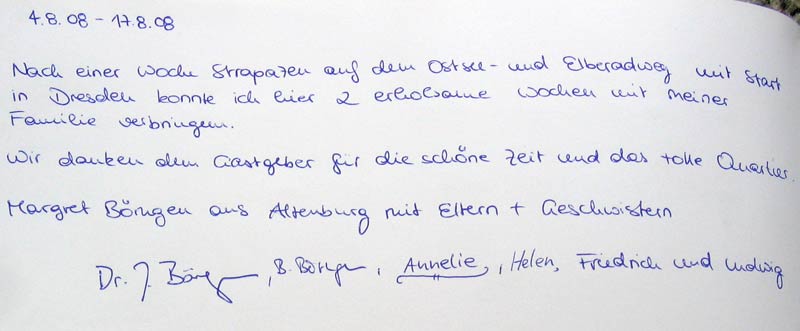 4.8.08 - 17.8.08
Nach einer Woche Strapazen auf dem Ostsee- und Elberadweg mit Start
in Dresden konnte ich hier 2 erholsame Wochen mit meiner
Familie verbringen.
Wir danken dem Gastgeber für die schöne Zeit und das tolle Quartier.
Margret aus Altenburg mit Eltern + Geschwistern
Dr. J. , B. , Annelie, , Helen, Friedrich und Ludwig